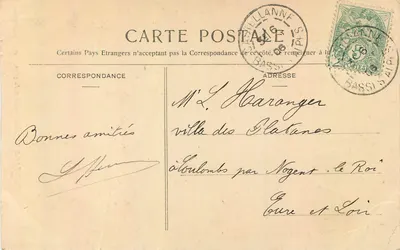 CARTE POSTALE
Certains Pays Etrangers n'acceptant pas la Correspondance de ce côté, se renseigner à la
CORRESPONDANCE
ADRESSE
Bonnes amitiés
Mr L. Haranger
villa des Platanes
à Coulombs par Nogent-le Roi
Eure et Loir
BASSES ALPES
08